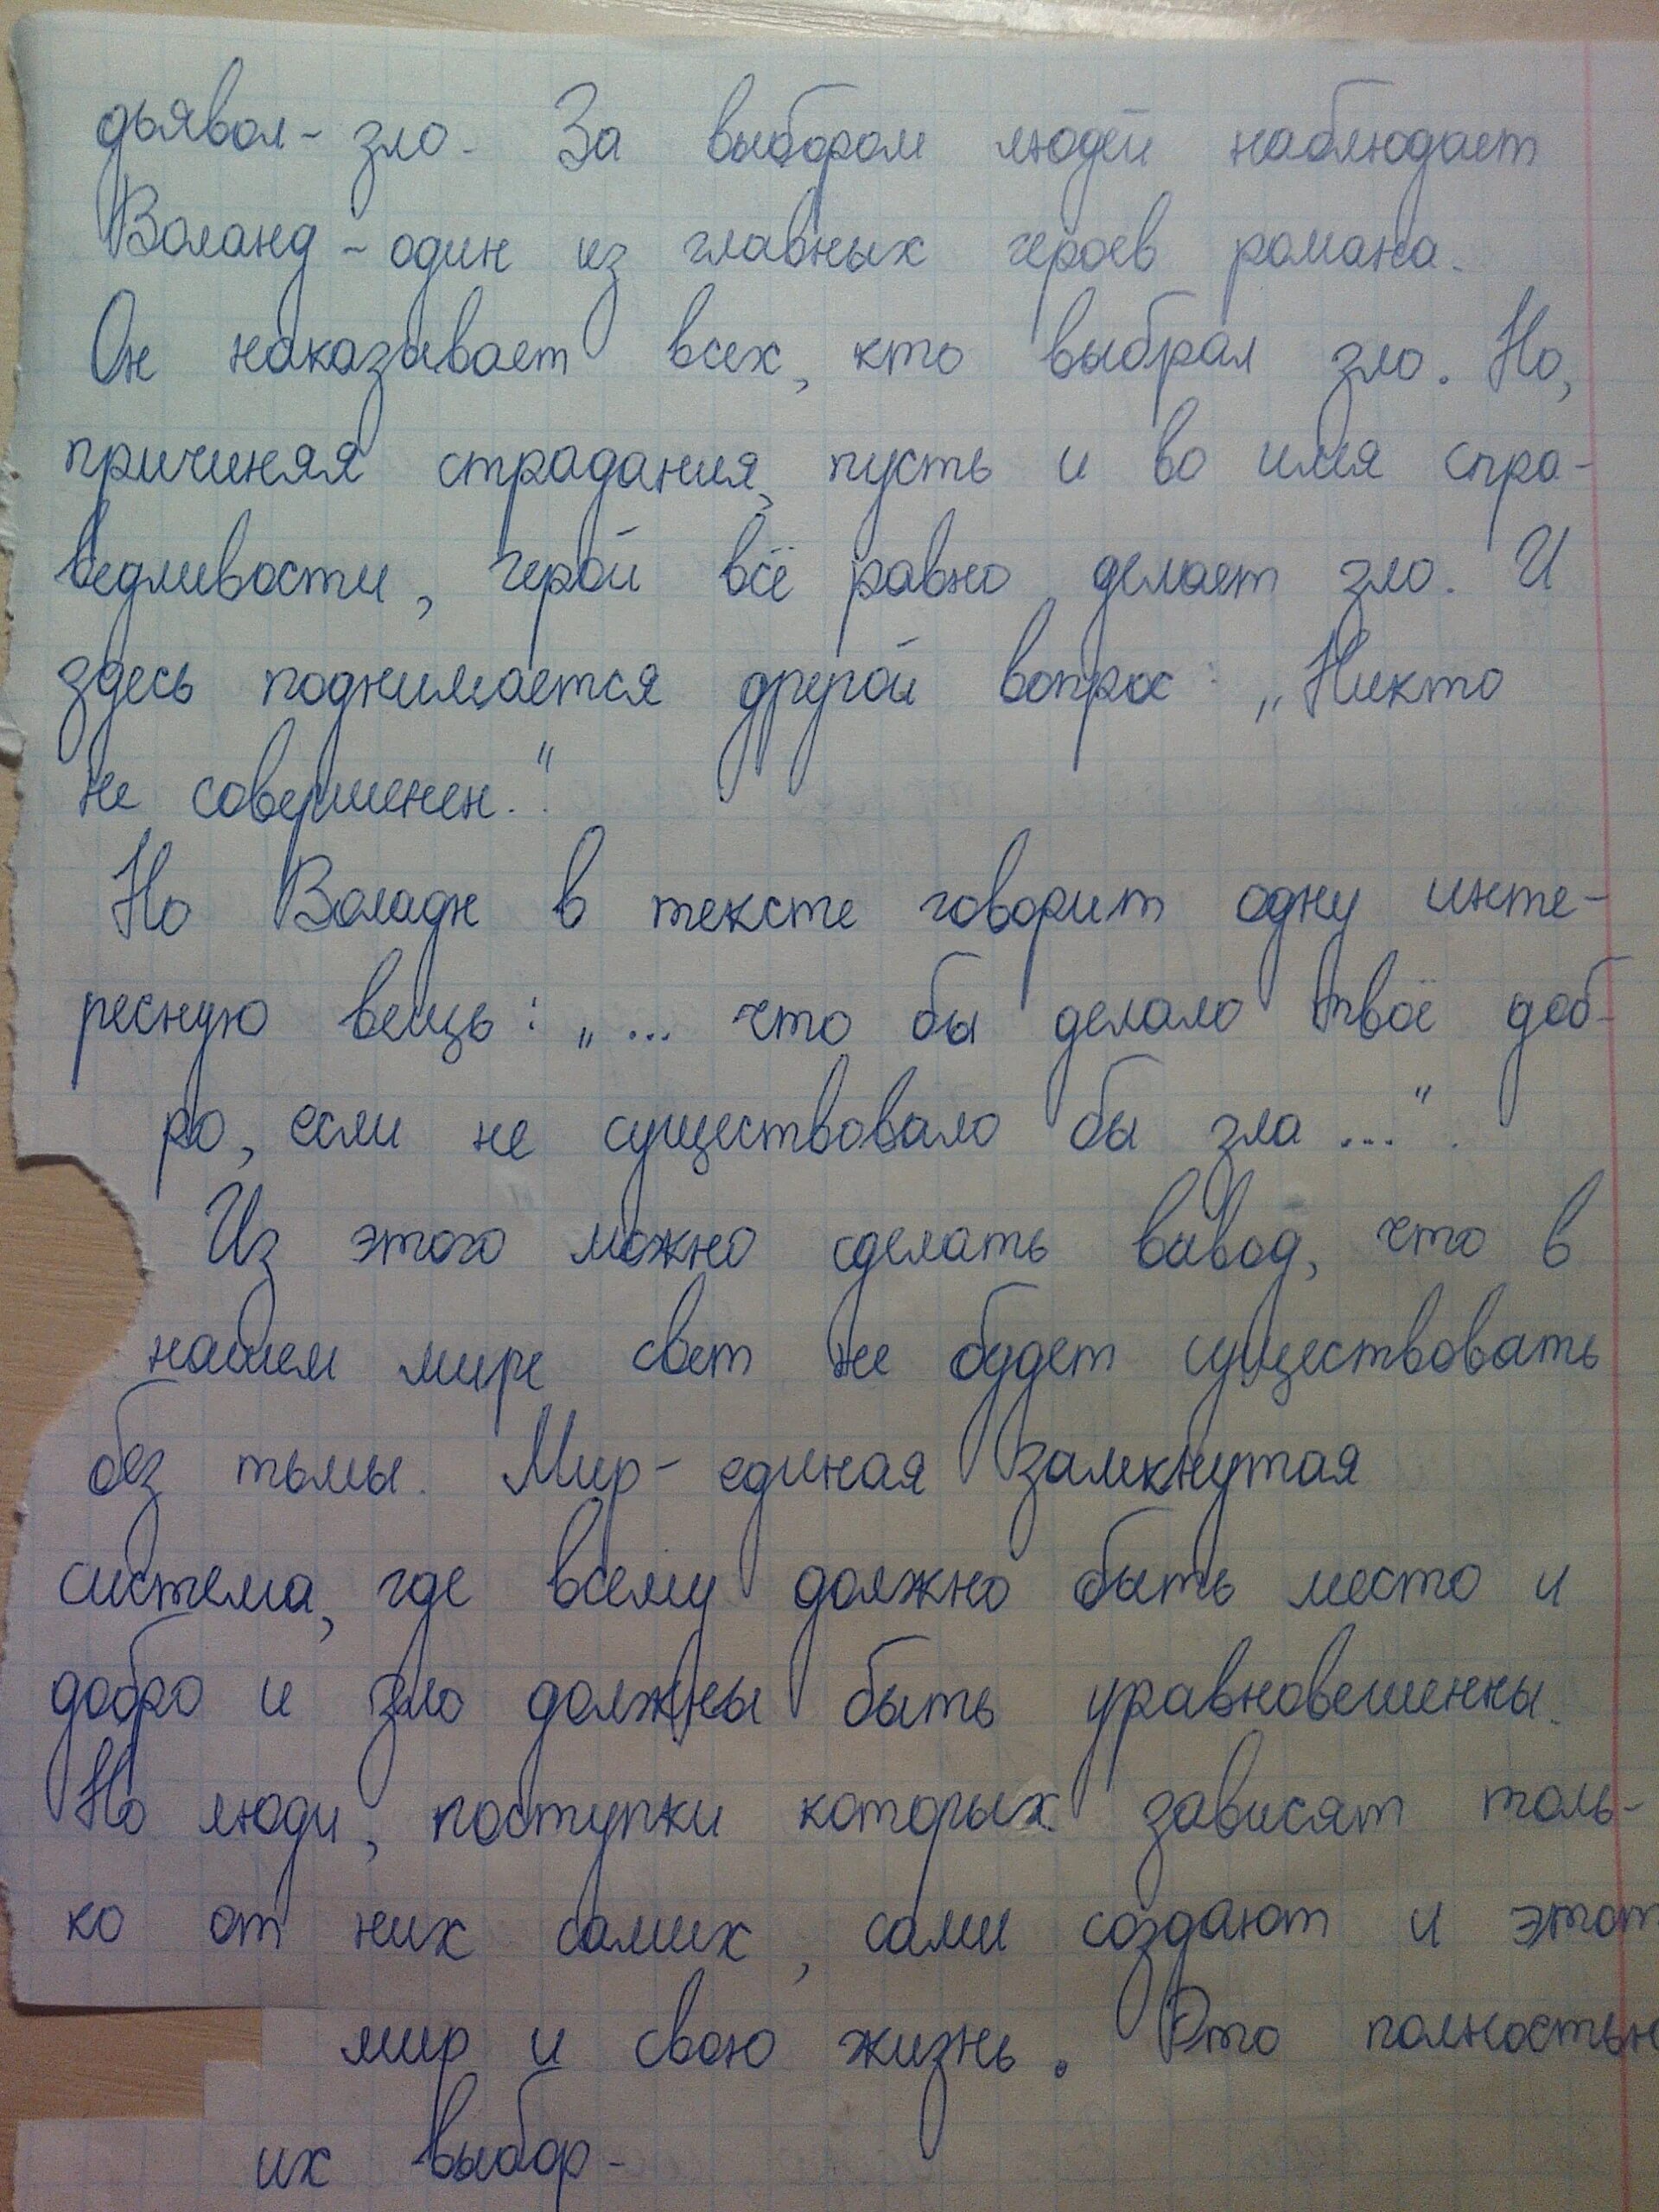 дьявол - зло. За выбором людей наблюдает
Воланд - один из главных героев романа.
Он наказывает всех, кто выбрал зло. Но,
причиняя страдания, пусть и во имя спра-
ведливости, герой всё равно делает зло. И
здесь поднимается другой вопрос: „Никто
не совершенен.".
Но Воладн в тексте говорит одну инте-
ресную вещь: „... что бы делало твоё доб-
ро, если не существовало бы зла...".
Из этого можно сделать вывод, что в
нашем мире свет не будет существовать
без тьмы. Мир - единая замкнутая
система, где всему должно быть место и
добро и зло должны быть уравновешенны.
Но люди, поступки которых зависят толь-
ко от них самих, сами создают и этот
мир и свою жизнь. Это полностью
их выбор.